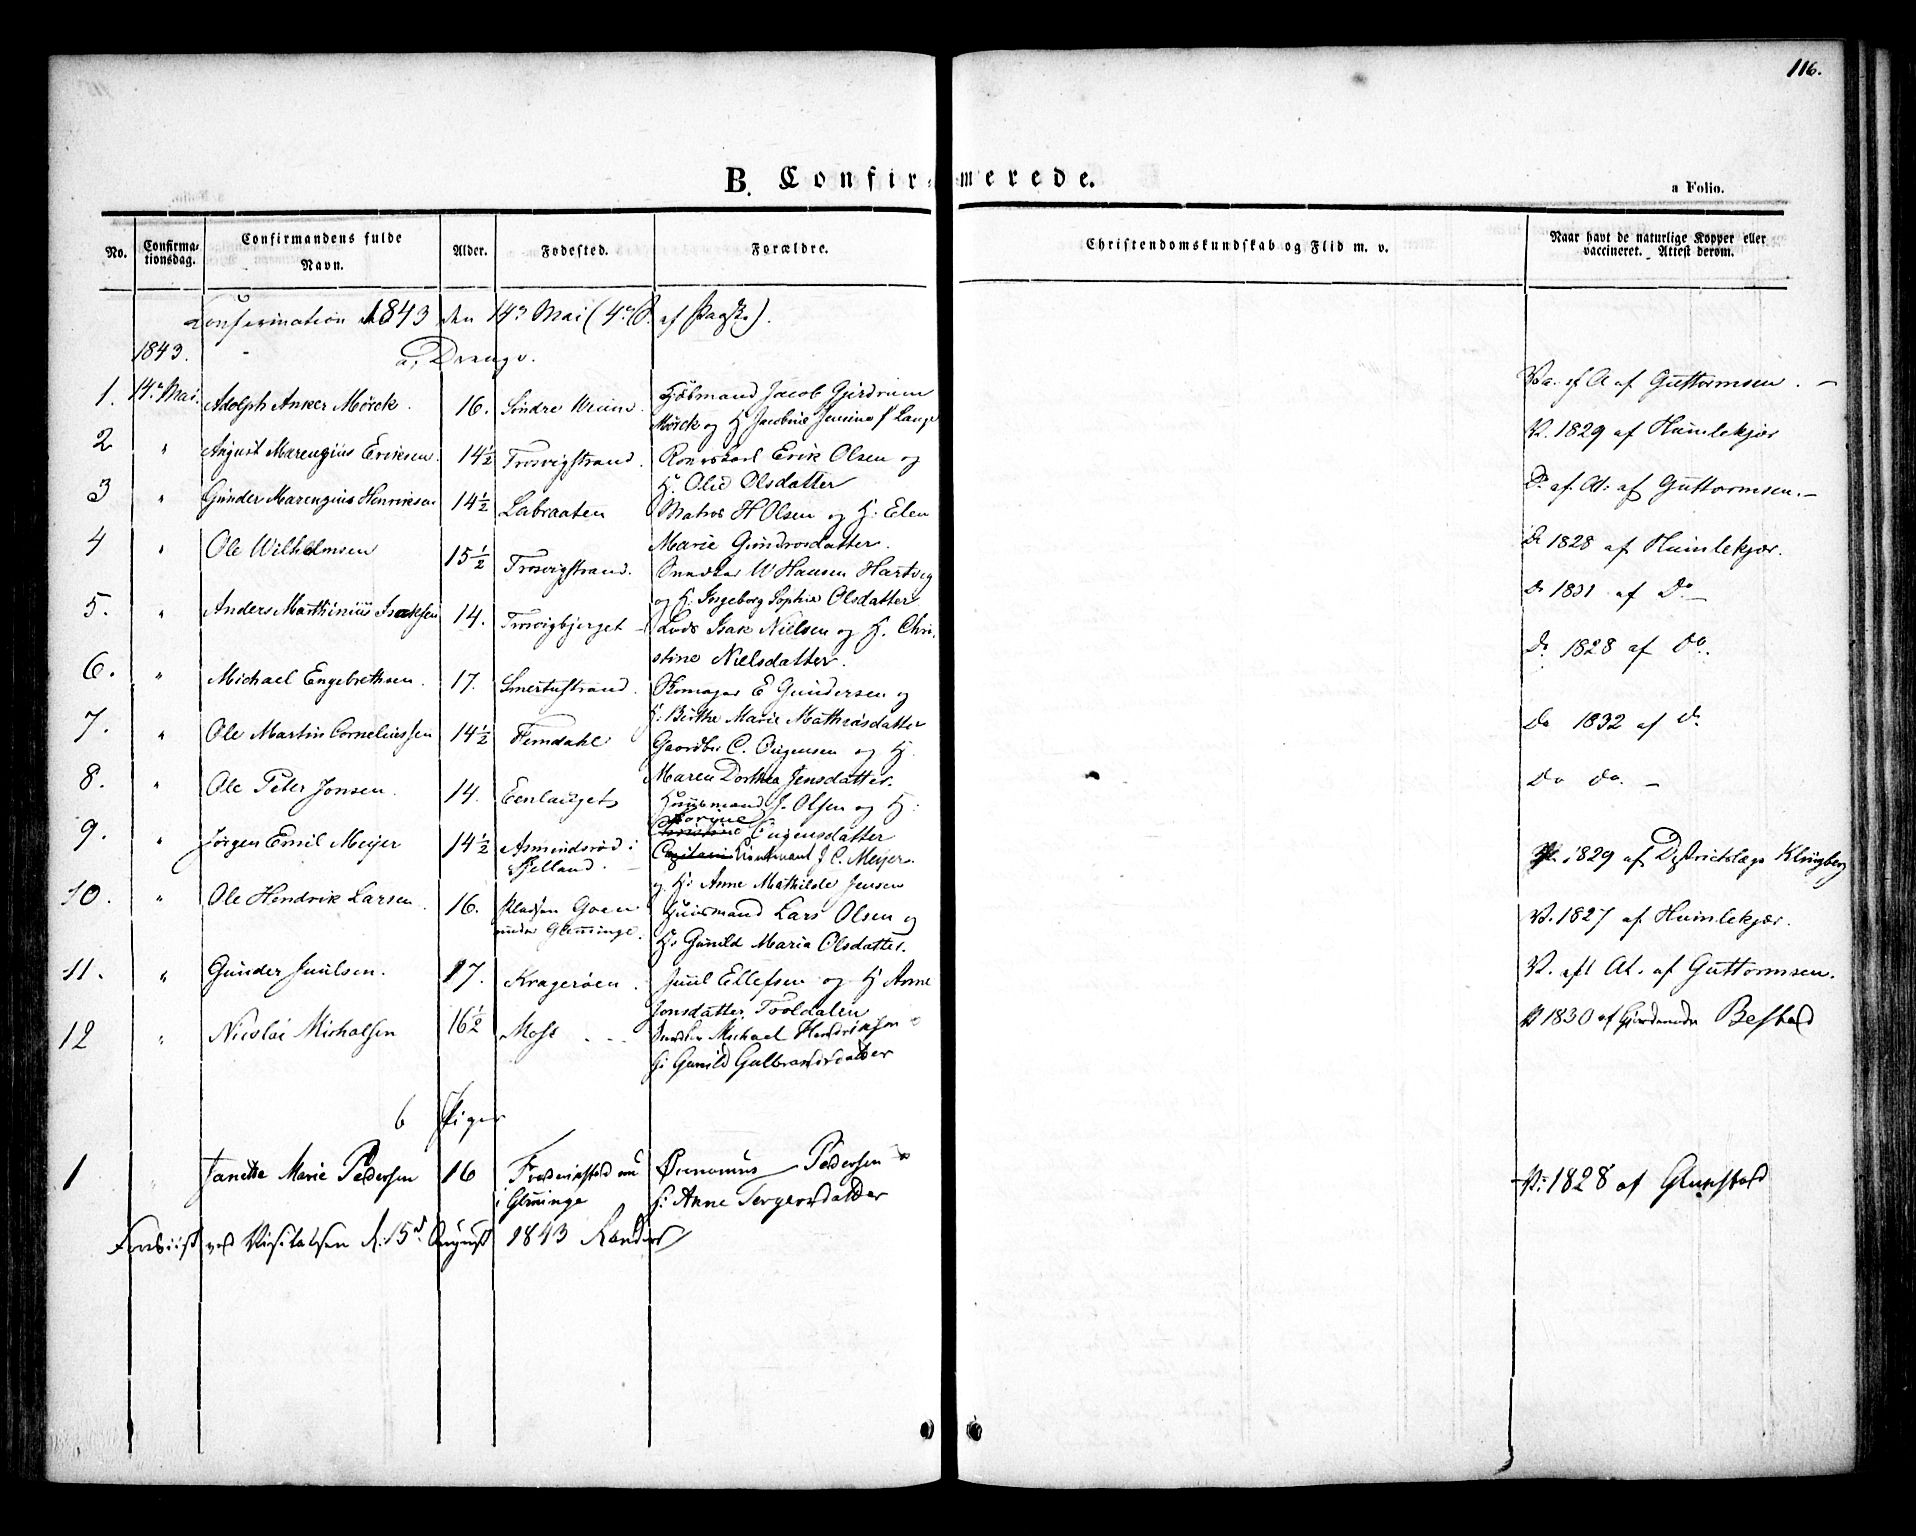 116.
B. Confirmerede.
a Folio.
No.
Confirma-
tionsdag.
Confirmandens fulde
Navn.
Alder.
Fødested.
Forældre.
Christendomskundskab og Flid m. v.
Naar havt de naturlige Kopper eller
vaccineret. Attest derom.
Confirmation 1843 den 14de Mai (4de S. af Paaske).
1843. a, Drenge.
1. 14de Mai. Adolph Anker Mörck. 16. Söndre Kjöbmand Jacob Gjerdrum
Mörck og H Jacobine Lange
Va. ef A af Guttormsen. —
2 " August Marenyius Eriksen. 14½ Trosvigstrand. Erik Olsen og
H. Olsdatter
V. 1829 af Humlekjær
3 " Gunder Marengius Henriksen 14½ Labraaten Matros H Olsen og H: Elen
Marie Gundrosdatter.
Do af. At: af Guttormsen.—
4 " Ole Wilhelmsen 15½ Trosvigstrand. Snedker W Hansen Hartvig
og H. Ingeborg Sophie Olsdatter
Do 1828 af Humlekjær.
5. " Anders Marthinius Isaksen 14. Trosvigbjerget Lods Isak Nielsen og H. Chri-
stine Nielsdatter.
Do 1831 af Do —
6. " Michael Engebrethsen. 17. Smertustrand. Skomager E Gundersen og
H: Birthe Marie Mathiasdatter
Do 1828 af do.
7. " Ole Martin Corneliussen 14½ Femdahl Gaardbr C. og H.
Maren Dorthea Jensdatter.
Do 1832 af do
8. " Ole Peter Jonsen. 14. Eenlauget Huusmand J. Olsen og H:
Christine
Do do. —
9. " Jørgen Emil Meyer 14½ Asmindsrød i
Sjelland. Lieutenant J C. Meyer
og H: Anne Mathilde Jensen
V. 1829 af Districtslæge Klingberg
10. " Ole Hendrik Larsen. 16. Pladsen Goen
under Glemminge. Huusmand Lars Olsen og
H: Gunild Maria Olsdatter.
V. 1827 af Humlekjær.
11. " Gunder Juulsen. 17. Kragerøen. Juul Ellefsen og H Anne
Jonsdatter, Troldalen
V. eft At. af Guttormsen.
12 " Nicolai Michalsen 16½ Moss Snedker Michael Hendriksen
H: Gunild Gulbrandsdatter
V 1830 af
b Piger
1 " Janette Marie Pedersen 16 Frederikstad nu
i Glemminge Pedersen
H: Anne
V: 1828 af
Foreviist ved Visitatsen d. 15de August 1843